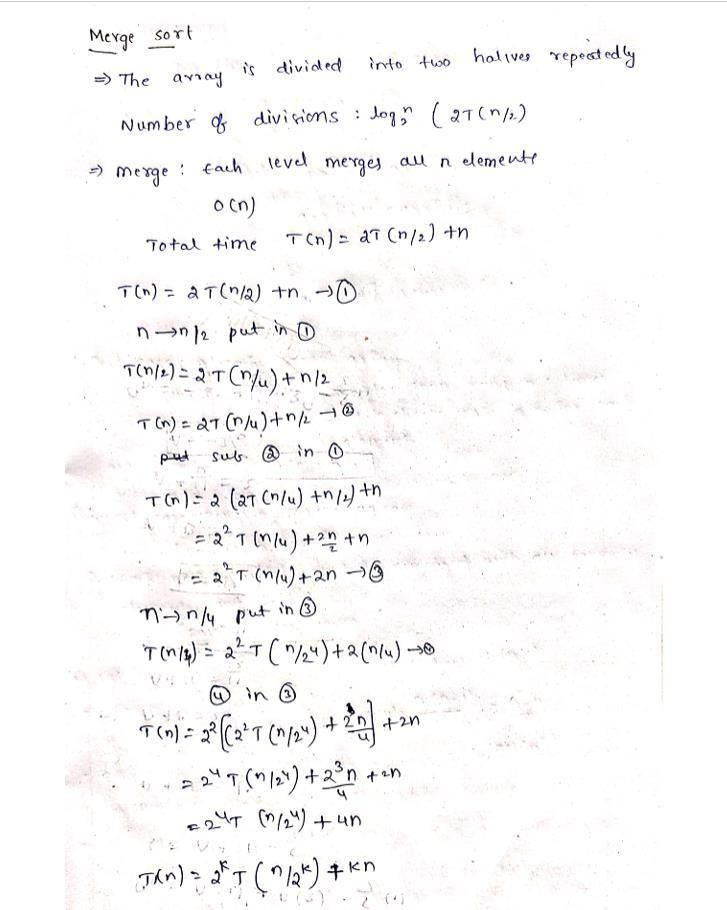 Merge sort
⇒ The array is divided into two halives repeatedly
Number of divisions : log₂ⁿ ( 2T(n/2)
⇒ merge : Each level merges all n elements
O(n)
Total time T(n) = 2T(n/2) +n
T(n) = 2T(n/2) +n → ①
n→n/2 put in ①
T(n/2) = 2T(n/4) + n/2
T(n) = 2T(n/4) + n/2 → ②
sub ② in ①
T(n) = 2 (2T(n/4) + n/2) + n
= 2² T(n/4) + 2n/2 + n
= 2² T(n/4) + 2n → ③
n→n/4 put in ③
T(n/4) = 2² T(n/2⁴) + 2(n/4) → ④
④ in ③
T(n) = 2² [(2² T(n/2⁴) + 2n/4] + 2n
= 2⁴ T(n/2⁴) + 2³n/4 + 2n
= 2⁴T (n/2⁴) + 4n
T(n) = 2ᵏ T(n/2ᵏ) + kn